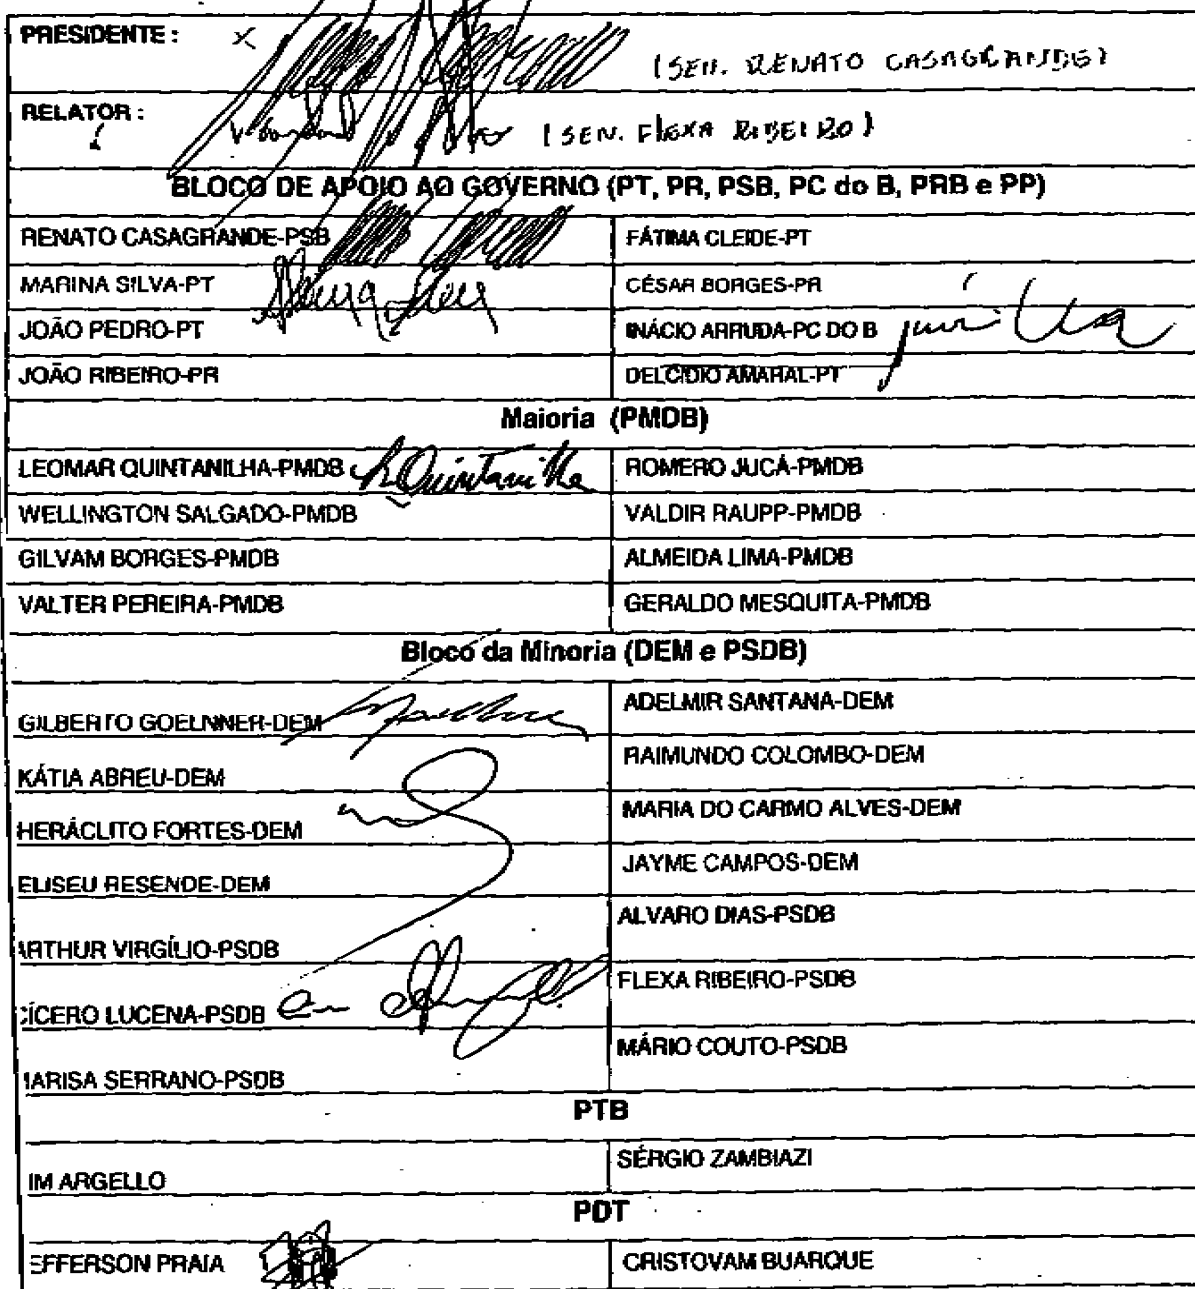 PRESIDENTE : x (SEN. RENATO CASAGRANDE)
RELATOR : (SEN. FLEXA RIBEIRO)
BLOCO DE APOIO AO GOVERNO (PT, PR, PSB, PC do B, PRB e PP)
RENATO CASAGRANDE-PSB FÁTIMA CLEIDE-PT
MARINA SILVA-PT CÉSAR BORGES-PR
JOÃO PEDRO-PT INÁCIO ARRUDA-PC DO B
JOÃO RIBEIRO-PR DELCÍDIO AMARAL-PT
Maioria (PMDB)
LEOMAR QUINTANILHA-PMDB LQuintanilha ROMERO JUCÁ-PMDB
WELLINGTON SALGADO-PMDB VALDIR RAUPP-PMDB
GILVAM BORGES-PMDB ALMEIDA LIMA-PMDB
VALTER PEREIRA-PMDB GERALDO MESQUITA-PMDB
Bloco da Minoria (DEM e PSDB)
GILBERTO GOELNNER-DEM ADELMIR SANTANA-DEM
KÁTIA ABREU-DEM RAIMUNDO COLOMBO-DEM
HERÁCLITO FORTES-DEM MARIA DO CARMO ALVES-DEM
ELISEU RESENDE-DEM JAYME CAMPOS-DEM
ARTHUR VIRGÍLIO-PSDB ALVARO DIAS-PSDB
CÍCERO LUCENA-PSDB FLEXA RIBEIRO-PSDB
MARISA SERRANO-PSDB MÁRIO COUTO-PSDB
PTB
IM ARGELLO SÉRGIO ZAMBIAZI
PDT
EFFERSON PRAIA CRISTOVAM BUARQUE